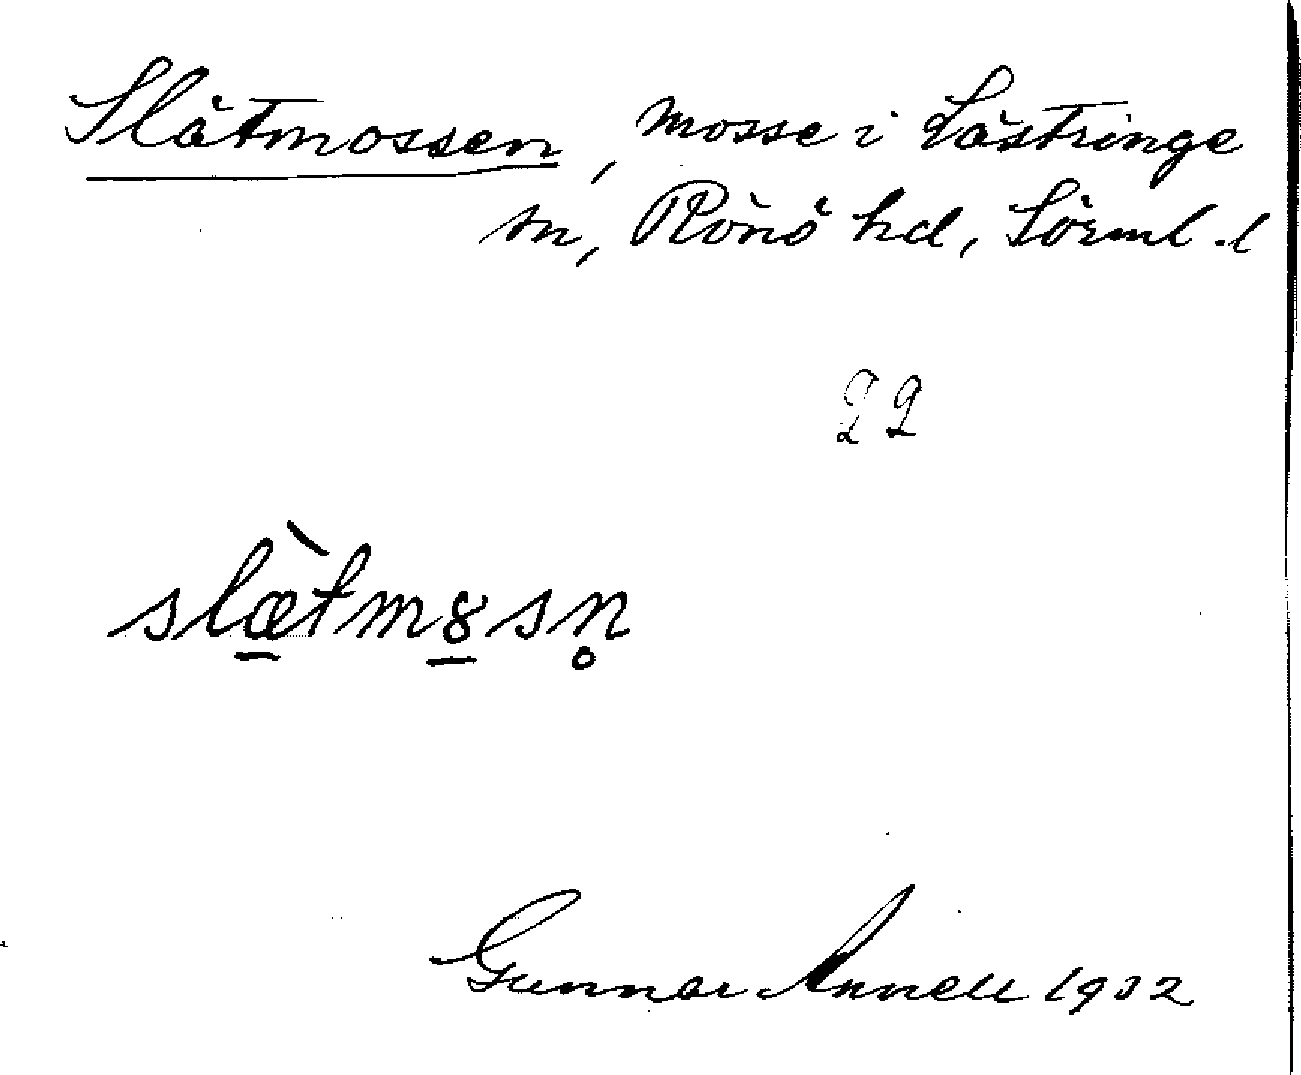 Slätmossen, mosse i Lästringe
sn, Rönö hd, Sörml. l
22
slæ̠̀tm8̠sn̥
Gunnar Annell 1932